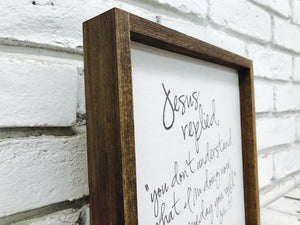 Jesus
replied
"you don't understand
what I'm doing now,
someday you will"